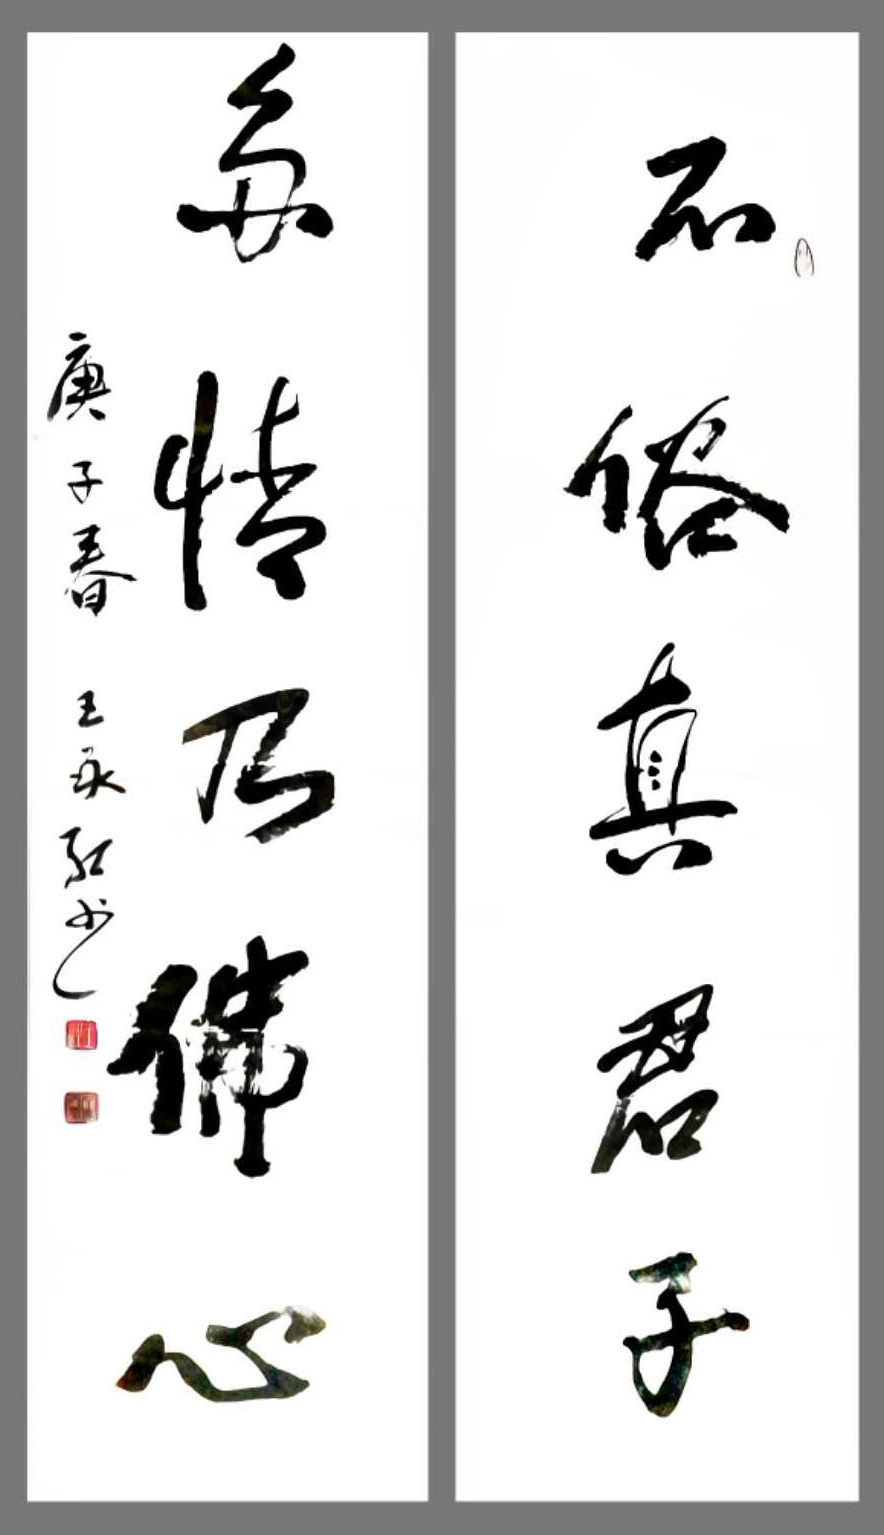 不俗真君子
多情乃佛心
庚子春 王永红书